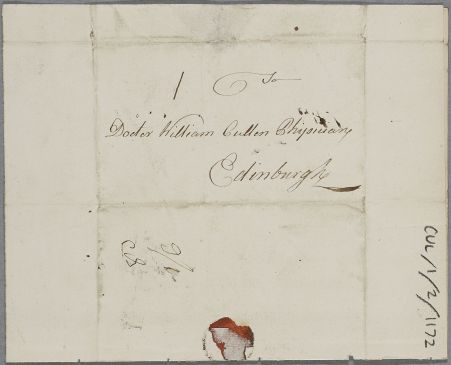 1 To
Doctor William Cullen Physician
Edinburgh
CUL/1/2/1172